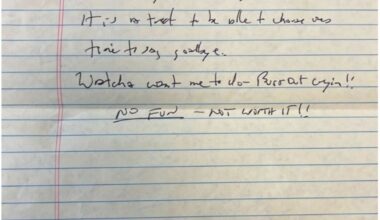 It is a treat to be able to choose ones
time to say goodbye.
Watcha want me to do - Burst out crying!!
NO FUN - NOT WORTH IT!!